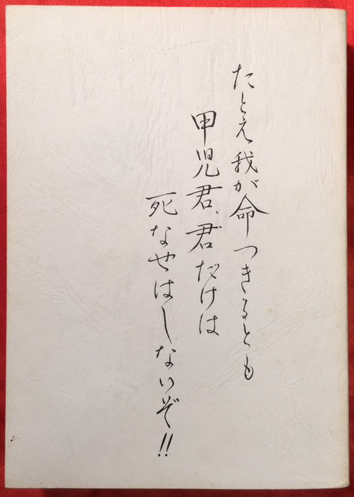 たとえ我が命つきるとも
甲児君、君だけは
死なせはしないぞ!!